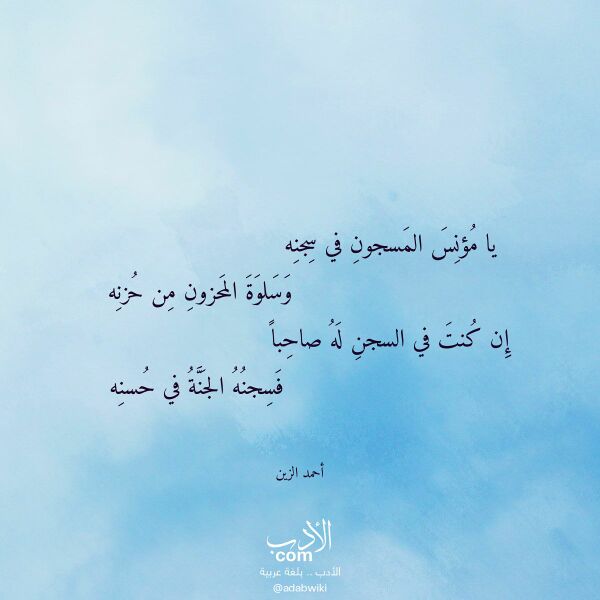 يا مُؤنِسَ المَسجونِ في سِجنِه
وَسَلوَةَ المَحزونِ مِن حُزنِه
إِن كُنتَ في السجنِ لَهُ صاحِباً
فَسِجنُهُ الجَنَّةُ في حُسنِه
أحمد الزين
الأدب
com
الأدب .. بلغة عربية
@adabwiki